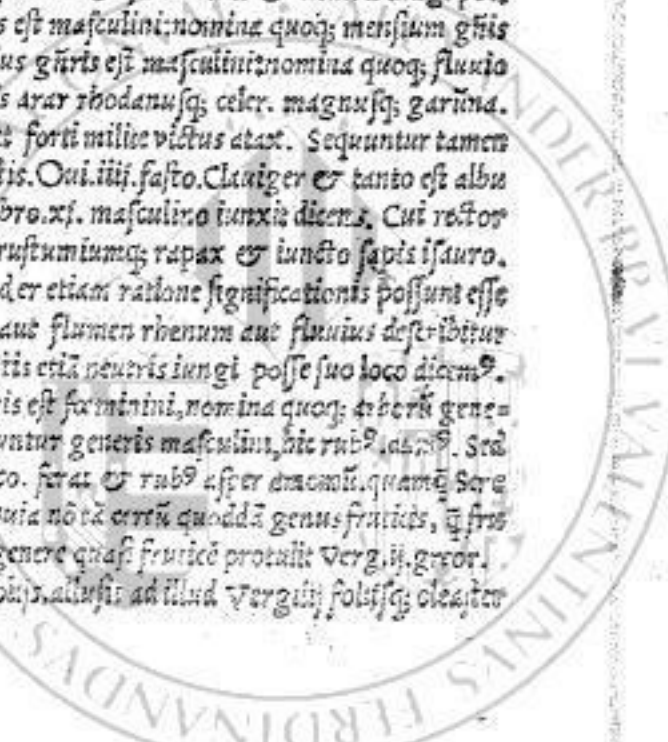 s est masculini:nomina quoq; mensium gñis
us gñris est masculini:nomina quoq; fluuio
s arar rhodanusq; celer. magnusq; garũna.
t forti milite victus atax. Sequuntur tamen
tis.Oui.iiij.fasto.Clauiger & tanto est albu
bro.xj. masculino iunxit dicens. Cui rector
rustumiumq; rapax & iuncto sapis isauro.
der etiam ratione significationis possunt esse
aut flumen rhenum aut fluuius describitur
tis etiã neutris iungi posse suo loco dicemꝰ.
is est fœminini,nomina quoq; arborũ gene=
untur generis masculini,hic rubꝰ. Sed
co. ferat & rubꝰ asper amomũ.
uia nõ tã quoddã genus fruticis,
genere quasi fruticẽ protulit Verg.ij.geor.
allusit ad illud Vergilij folijsq; oleaster
VALENTINVS FERDINANDVS